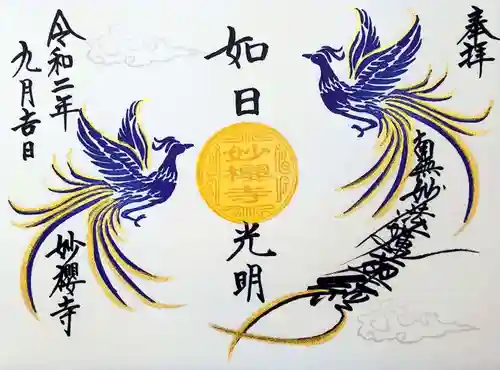 奉拝
南無妙法蓮華経
如日
妙櫻寺
光明
令和二年
九月吉日
妙櫻寺